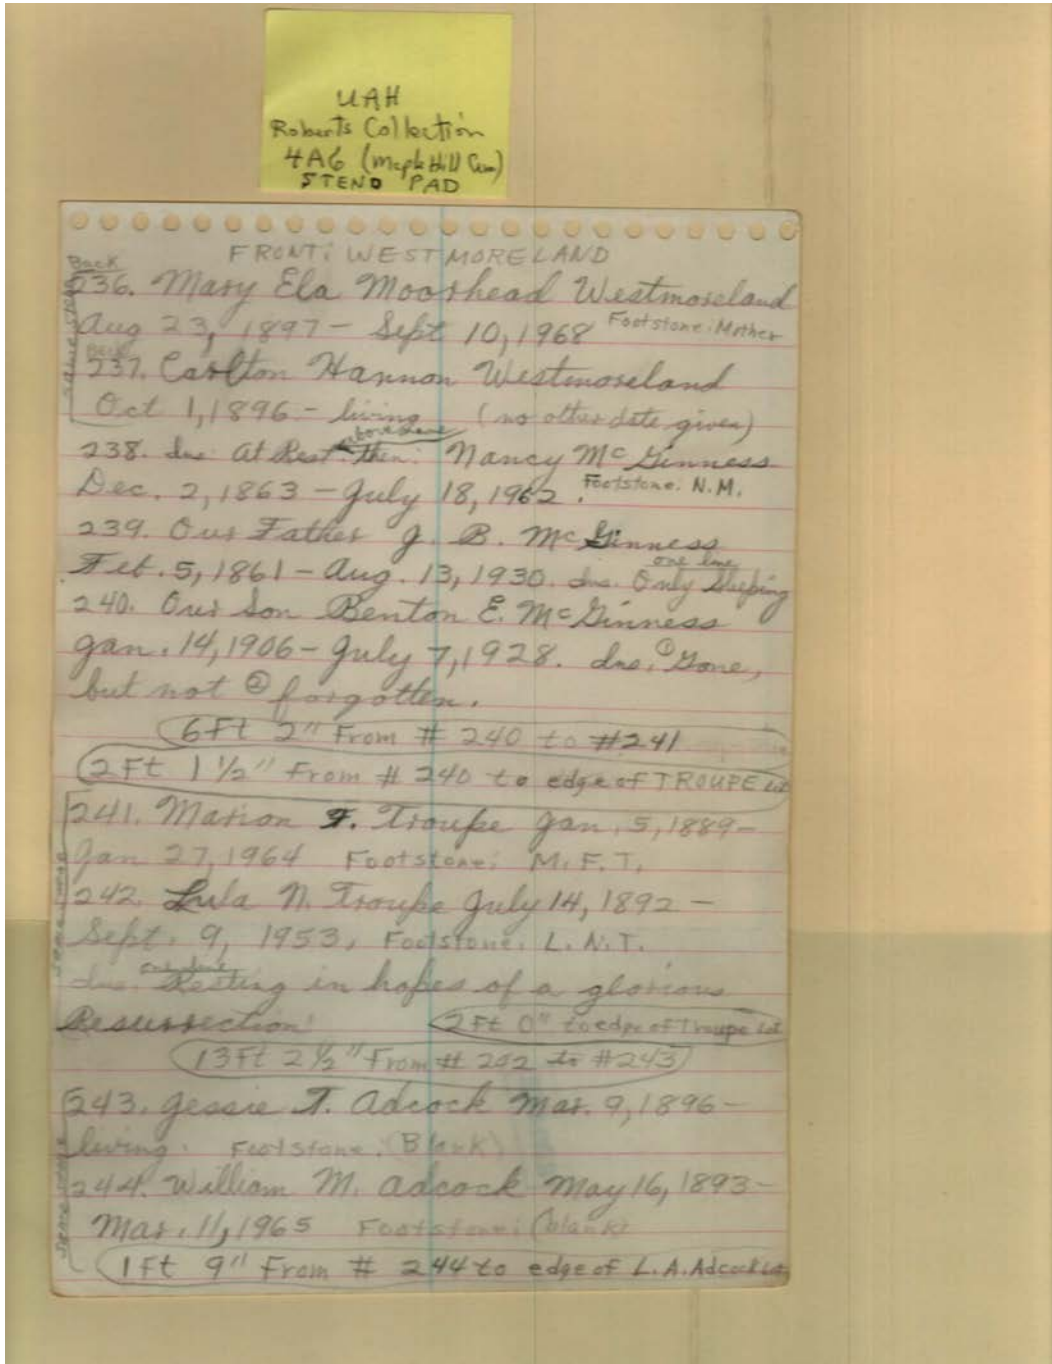 UAH
Roberts Collection
4A6 (Maple Hill Cem)
STENO PAD
FRONT: WESTMORELAND
Back
236. Mary Ela Moorhead Westmoreland
Aug 23, 1897 - Sept 10, 1968 Footstone: Mother
Back
237. Carlton Hannon Westmoreland
Oct 1, 1896 - living (no other date given)
same stone
above name
238. Ins: At Rest. then: Nancy McGinness
Dec. 2, 1863 - July 18, 1962. Footstone: N.M.
239. Our Father J. B. McGinness
one line
Feb. 5, 1861 - Aug. 13, 1930. Ins. Only Sleeping
240. Our Son Benton E. McGinness
Jan. 14, 1906 - July 7, 1928. Ins. ① Gone,
but not ② forgotten.
6 Ft 2" From # 240 to #241
2 Ft 1 1/2" From # 240 to edge of TROUPE Lot
241. Marion F. Troupe Jan. 5, 1889 -
Jan 27, 1964 Footstone: M.F.T.
242. Lula N. Troupe July 14, 1892 -
Sept. 9, 1953, Footstone: L.N.T.
same stone
one line
Ins. Resting in hopes of a glorious
Resurrection 2 Ft 0" to edge of Troupe Lot
13 Ft 2 1/2" From # 242 to #243
243. Jessie T. Adcock Mar. 9, 1896 -
living. Footstone: (Blank)
244. William M. Adcock May 16, 1893 -
Mar. 11, 1965 Footstone: (blank)
same stone
1 Ft 9" From # 244 to edge of L.A. Adcock Lot